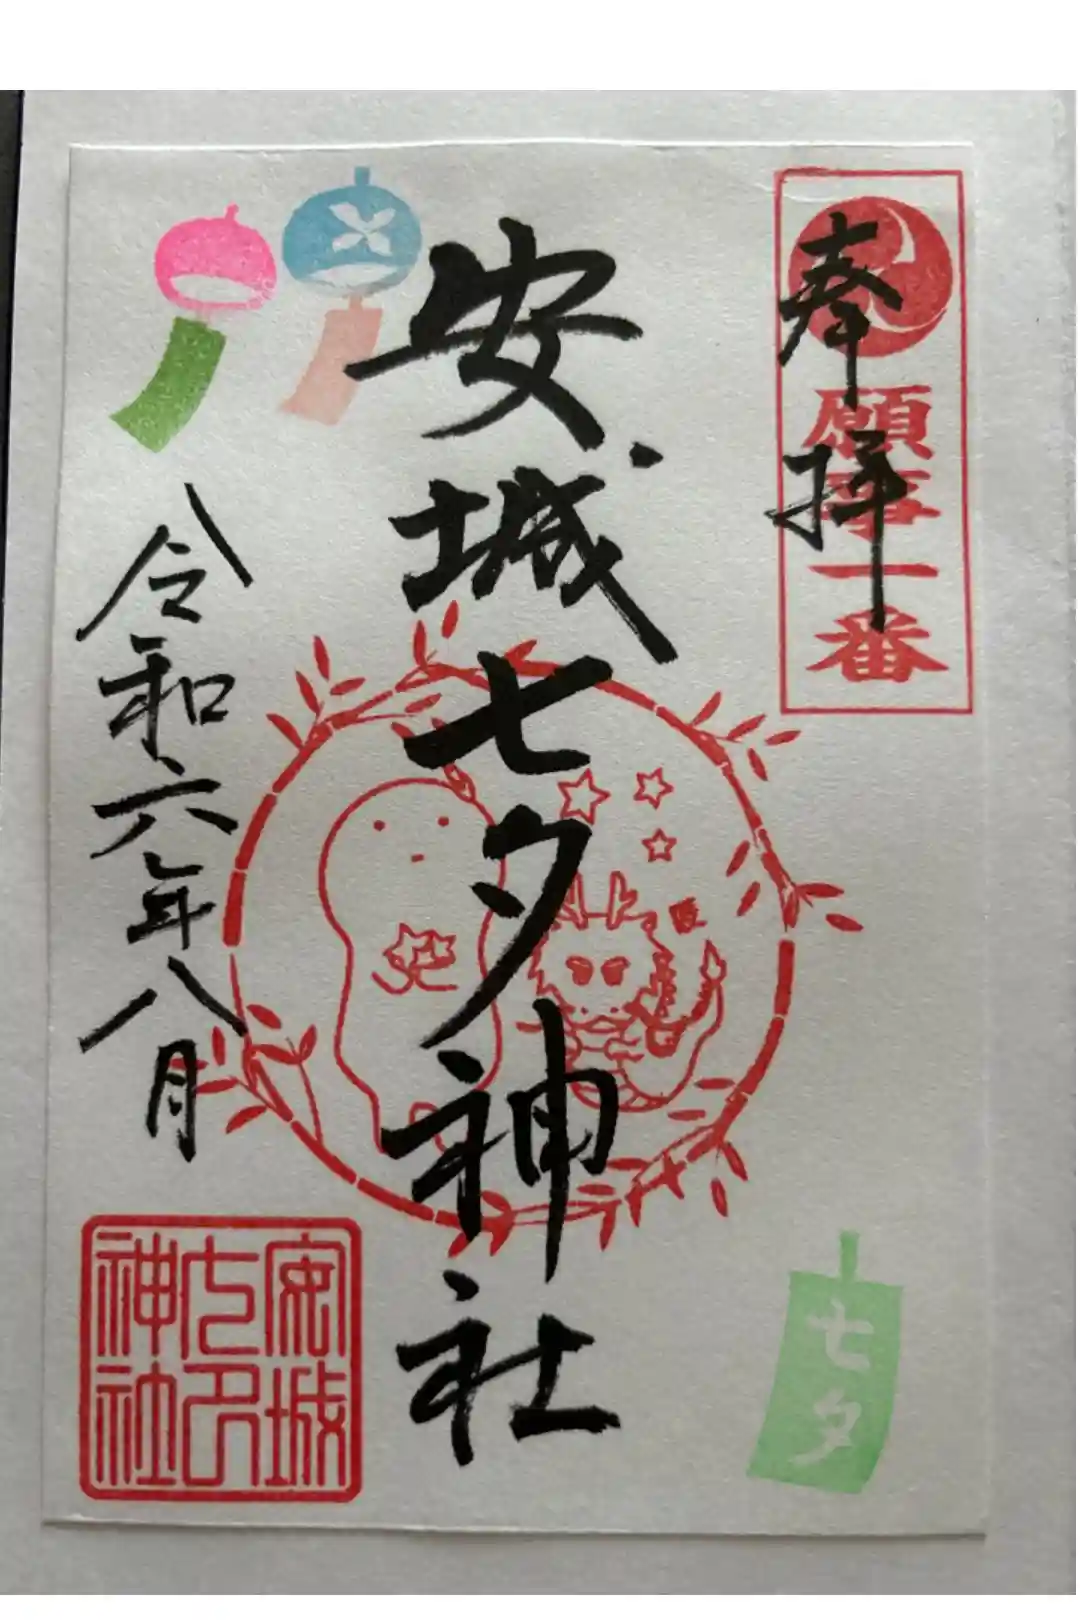 奉拝
願事一番
安城七夕神社
令和六年八月
安城
七夕
神社
七夕